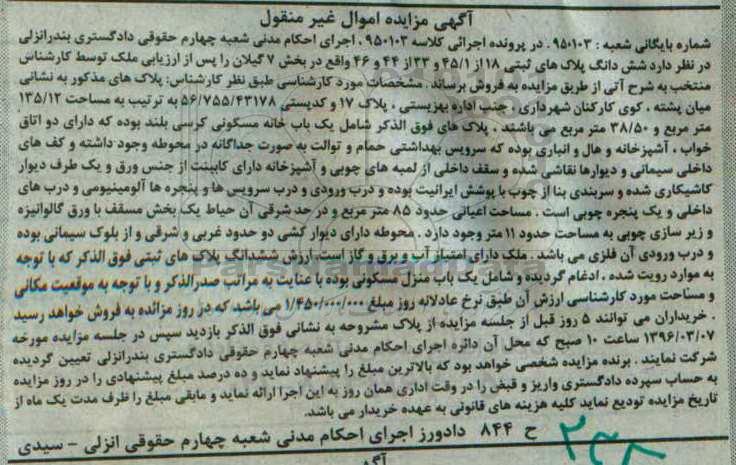 آگهی مزایده اموال غیر منقول
شماره بایگانی شعبه : ۹۵۰۱۰۳ . در پرونده اجرائی کلاسه ۹۵۰۱۰۳ . اجرای احکام مدنی شعبه چهارم حقوقی دادگستری بندرانزلی
در نظر دارد شش دانگ پلاک های ثبتی ۱۸ از ۴۵/۱ و ۳۳ از ۴۴ و ۴۶ واقع در بخش ۷ گیلان را پس از ارزیابی ملک توسط کارشناس
منتخب به شرح آتی از طریق مزایده به فروش برساند. مشخصات مورد کارشناسی طبق نظر کارشناس: پلاک های مذکور به نشانی
میان پشته ، کوی کارکنان شهرداری ، جنب اداره بهزیستی ، پلاک ۱۷ و کدپستی ۵۶/۷۵۵/۴۳۱۷۸ به ترتیب به مساحت ۱۳۵/۱۲
متر مربع و ۳۸/۵۰ متر مربع می باشند . پلاک های فوق الذکر شامل یک باب خانه مسکونی کرسی بلند بوده که دارای دو اتاق
خواب ، آشپزخانه و هال و انباری بوده که سرویس بهداشتی حمام و توالت به صورت جداگانه در محوطه وجود داشته و کف های
داخلی سیمانی و دیوارها نقاشی شده و سقف داخلی از لمبه های چوبی و آشپزخانه دارای کابینت از جنس ورق و یک طرف دیوار
کاشیکاری شده و سربندی بنا از چوب با پوشش ایرانیت بوده و درب ورودی و درب سرویس ها و پنجره ها آلومینیومی و درب های
داخلی و یک پنجره چوبی است . مساحت اعیانی حدود ۸۵ متر مربع و در حد شرقی آن حیاط یک بخش مسقف با ورق گالوانیزه
و زیر سازی چوبی به مساحت حدود ۱۱ متر وجود دارد . محوطه دارای دیوار کشی دو حدود غربی و شرقی و از بلوک سیمانی بوده
و درب ورودی آن فلزی می باشد . ملک دارای امتیاز آب و برق و گاز است. ارزش ششدانگ پلاک های ثبتی فوق الذکر که با توجه
به موارد رویت شده ، ادغام گردیده و شامل یک باب منزل مسکونی بوده با عنایت به مراتب صدرالذکر و با توجه به موقعیت مکانی
و مساحت مورد کارشناسی ارزش آن طبق نرخ عادلانه روز مبلغ ۱/۴۵۰/۰۰۰/۰۰۰ می باشد که در روز مزائده به فروش خواهد رسید
. خریداران می توانند ۵ روز قبل از جلسه مزایده از پلاک مشروحه به نشانی فوق الذکر بازدید سپس در جلسه مزایده مورخه
۱۳۹۶/۰۳/۰۷ ساعت ۱۰ صبح که محل آن دائره اجرای احکام مدنی شعبه چهارم حقوقی دادگستری بندرانزلی تعیین گردیده
شرکت نمایند . برنده مزایده شخصی خواهد بود که بالاترین مبلغ را پیشنهاد نماید و ده درصد مبلغ پیشنهادی را در روز مزایده
به حساب سپرده دادگستری واریز و قبض را در وقت اداری همان روز به این اجرا ارائه نماید و مابقی مبلغ را ظرف مدت یک ماه از
تاریخ مزایده تودیع نماید کلیه هزینه های قانونی به عهده خریدار می باشد.
ح ۸۴۴ دادورز اجرای احکام مدنی شعبه چهارم حقوقی انزلی - سیدی